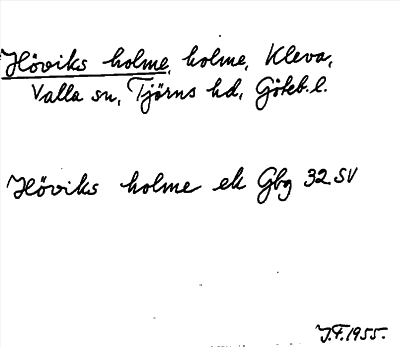 Höviks holme, holme, Kleva,
Valla sn, Tjörns hd, Göteb. l.
Höviks holme ek Gbg 32 SV
J.F. 1955.